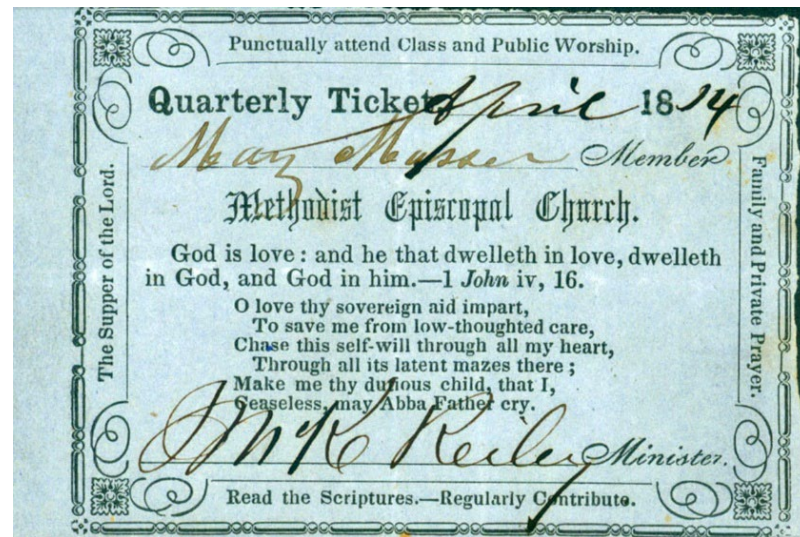 Punctually attend Class and Public Worship.
Quarterly Ticket April 18
Mary Musser Member
Methodist Episcopal Church.
God is love: and he that dwelleth in love, dwelleth
in God, and God in him.—1 John iv, 16.
O love thy sovereign aid impart,
To save me from low-thoughted care,
Chase this self-will through all my heart,
Through all its latent mazes there;
Make me thy duteous child, that I,
Ceaseless, may Abba Father cry.
J M K Reiley Minister.
Read the Scriptures.—Regularly Contribute.
The Supper of the Lord.
Family and Private Prayer.